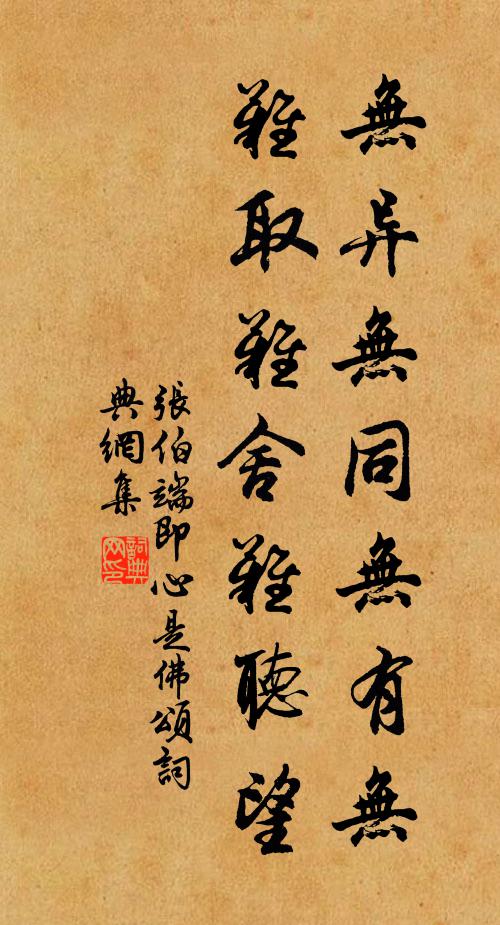 無异無同無有無
難取難舍難聽望
張伯端即心是佛頌詞
典網集
詞典
网印